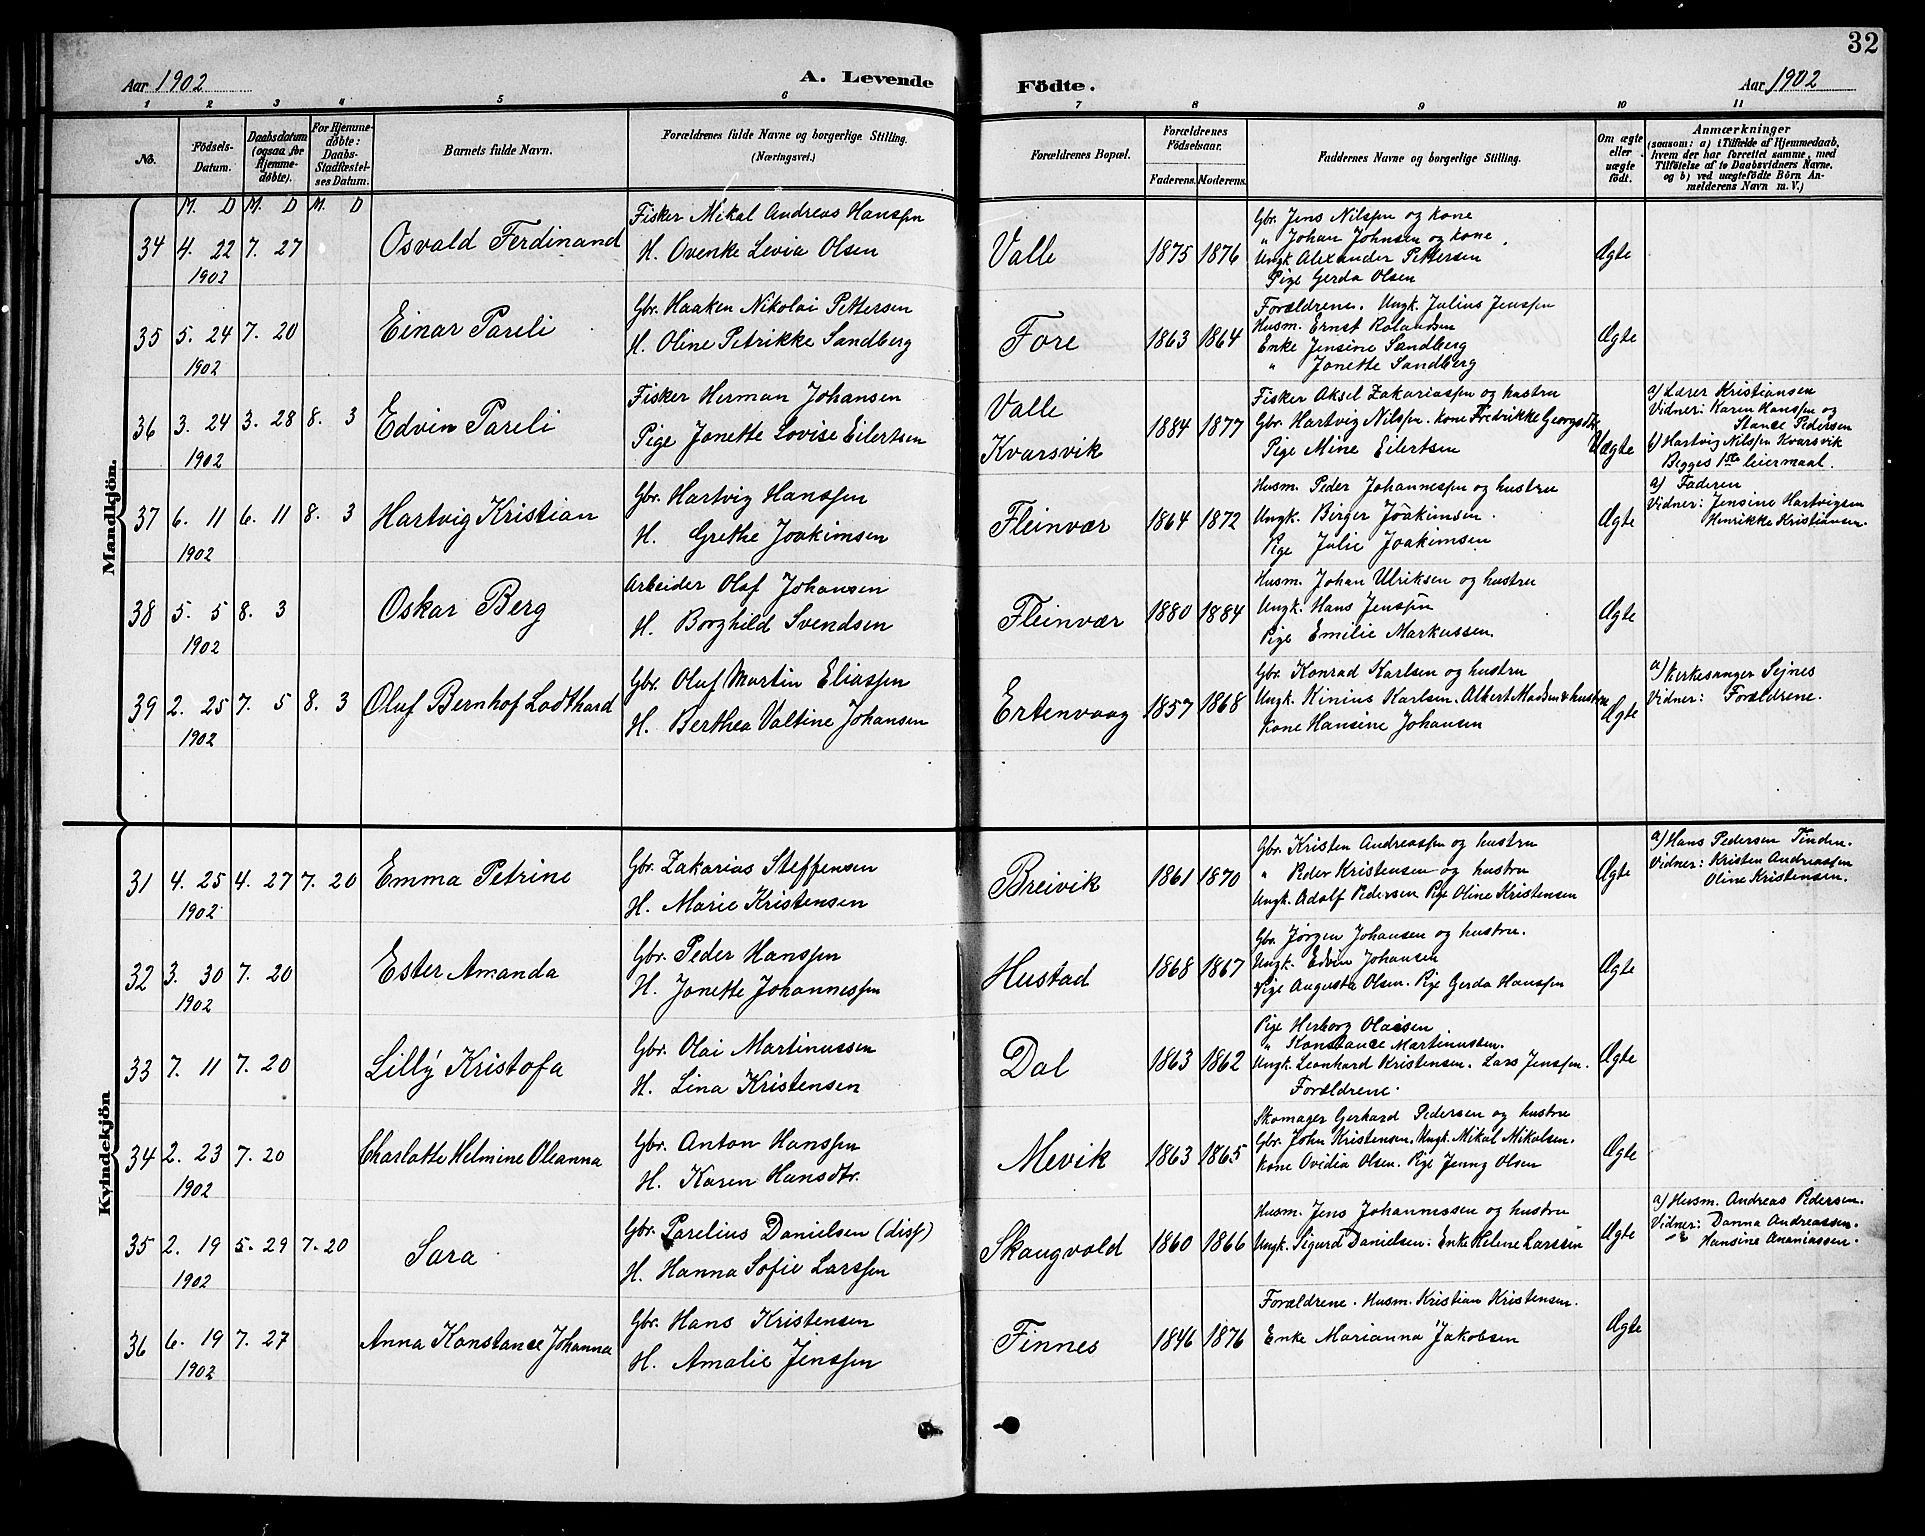 32
Aar 1902
A. Levende
Födte.
Aar 1902
1 2 3 4 5 6 7 8 9 10 11
No.
Födsels-
Datum.
Daabsdatum
(ogsaa for
Hjemme-
døbte).
For Hjemme-
døbte:
Daabs-
Stadfæstel-
ses Datum.
Barnets fulde Navn.
Forældrenes fulde Navne og borgerlige Stilling.
(Næringsvei.)
Forældrenes Bopæl.
Forældrenes
Födselsaar.
Faderens. Moderens.
Faddernes Navne og borgerlige Stilling.
Om ægte
eller
uægte
födt.
Anmærkninger
(saasom: a) i Tilfælde af Hjemmedaab,
hvem der har forrettet samme, med
Tilföielse af to Daabsvidners Navne,
og b) ved uægtefödte Börn An-
melderens Navn m. V.)
Mandkjön.
M. D M. D M. D
34 4. 22 7. 27
1902
Osvald Ferdinand
Fisker Mikal Andreas Hanssen
H. Ovenke Levia Olsen
Valle
1875 1876
Gbr. Jens Nilssen og kone
" Johan Johnsen og kone
Ungk. Alexander Pettersen
Pige Gerda Olsen
Ægte
35 5. 24 7. 20
1902
Einar Pareli
Gbr. Haaken Nikolai Pettersen
H. Oline Petrikke Sandberg
Fore
1863 1864
Forældrene. Ungk. Julius Jenssen
Husm. Ernst Rolandsen
Enke Jensine Sandberg
" Jonette Sandberg
Ægte
36 3. 24 3. 28 8. 3
1902
Edvin Pareli
Fisker Herman Johansen
Pige Jonette Lovise Eilertsen
Valle
Kvarsvik
1884 1877
Fisker Aksel Zakariassen og hustru
Gbr. Hartvig Nilssen. Kone Fredrikke Georgsdtr
Pige Mine Eilertsen
Uægte
a) Lærer Kristiansen
Vidner: Karen Hanssen og
Stance Pedersen
b) Hartvig Nilssen Kvarsvik
Begges 1ste leiermaal.
37 6. 11 6. 11 8. 3
1902
Hartvig Kristian
Gbr. Hartvig Hanssen
H. Grethe Joakimsen
Fleinvær
1864 1872
Husm. Peder Johannessen og hustru
Ungk. Birger Joakimsen.
Pige Julie Joakimsen
Ægte
a) Faderen
Vidner: Jensine Hartvigsen
Henrikke Kristiansen.
38 5. 5 8. 3
1902
Oskar Berg
Arbeider Olaf Johansen
H. Borghild Svendsen
Fleinvær
1880 1884
Husm. Johan Ulriksen og hustru
Ungk. Hans Jenssen
Pige Emilie Markussen.
Ægte
39 2. 25 7. 5 8. 3
1902
Oluf Bernhof Lodthard
Gbr. Oluf Martin Eliassen
H. Berthea Valtine Johansen
Ertenvaag
1857 1868
Gbr. Konrad Karlsen og hustru
Ungk. Hinius Karlsen. Albert Madsen & hustru
Kone Hansine Johansen
Ægte
a) Kirkesanger Sejnes
Vidner: Forældrene.
Kvindekjön
31 4. 25 4. 27 7. 20
1902
Emma Petrine
Gbr. Zakarias Steffensen
H. Marie Kristensen
Breivik
1861 1870
Gbr. Kristen Andreassen og hustru
" Peder Kristensen og hustru
Ungk. Adolf Pedersen Pige Oline Kristensen
Ægte
a) Hans Pedersen Tinden.
Vidner: Kristen Andreassen
Oline Kristensen.
32 3. 30 7. 20
1902
Ester Amanda
Gbr. Peder Hanssen
H. Jonette Johannessen
Hustad
1868 1867
Gbr. Jørgen Johansen og hustru.
Ungk. Edvin Johansen
Pige Augusta Olsen. Pige Gerda Hanssen
Ægte
33 7. 11 7. 20
Lilly Kristofa
Gbr. Olai Martinussen
H. Lina Kristensen
Dal
1863 1862
Pige Herborg Olaisen
" Konstance Martinussen.
Ungk. Leonhard Kristensen. Lars Jenssen.
Forældrene.
Ægte
34 2. 23 7. 20
1902
Charlotte Helmine Oleanna
Gbr. Anton Hanssen
H. Karen Hansdtr.
Mevik
1863 1865
Skomager Gerhard Pedersen og hustru
Gbr. John Kristensen. Ungk. Mikal Mikalsen.
Kone Ovidia Olsen. Pige Jenny Olsen
Ægte
35 2. 19 5. 29 7. 20
1902
Sara
Gbr. Parelius Danielsen (diss)
H. Hanna Sofie Larssen
Skaugvold
1860 1866
Husm. Jens Johannessen og hustru
Ungk. Sigurd Danielsen. Enke Helene Larssen
Ægte
a) Husm. Andreas Pedersen.
Vidner: Danna Andreassen.
Hansine Ananiassen.
36 6. 19 7. 27
1902
Anna Konstance Johanna
Gbr. Hans Kristensen
H. Amalie Jenssen
Finnes
1846 1876
Forældrene. Husm. Kristian Kristensen.
Enke Marianna Jakobsen
Ægte